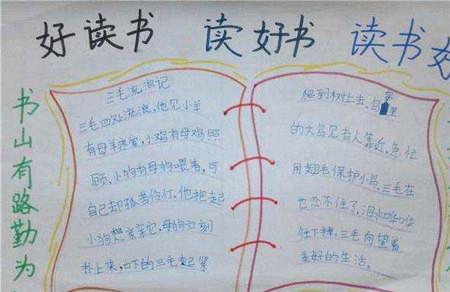 好读书 读好书 读书好
书山有路勤为
三毛流浪记
三毛四处流浪,他见小羊
有母羊关爱,小鸡有母鸡照
顾,小狗有母狗喂养,可
自己却孤苦伶仃,他抱起
小狗想亲亲它,母狗立刻
扑上来,吓的三毛赶紧
爬到树上去,鸟窝里
的大鸟见有人靠近,急忙
用翅毛保护小鸟,三毛在
也忍不住了,泪水哗哗
往下掉,三毛向望着
美好的生活。